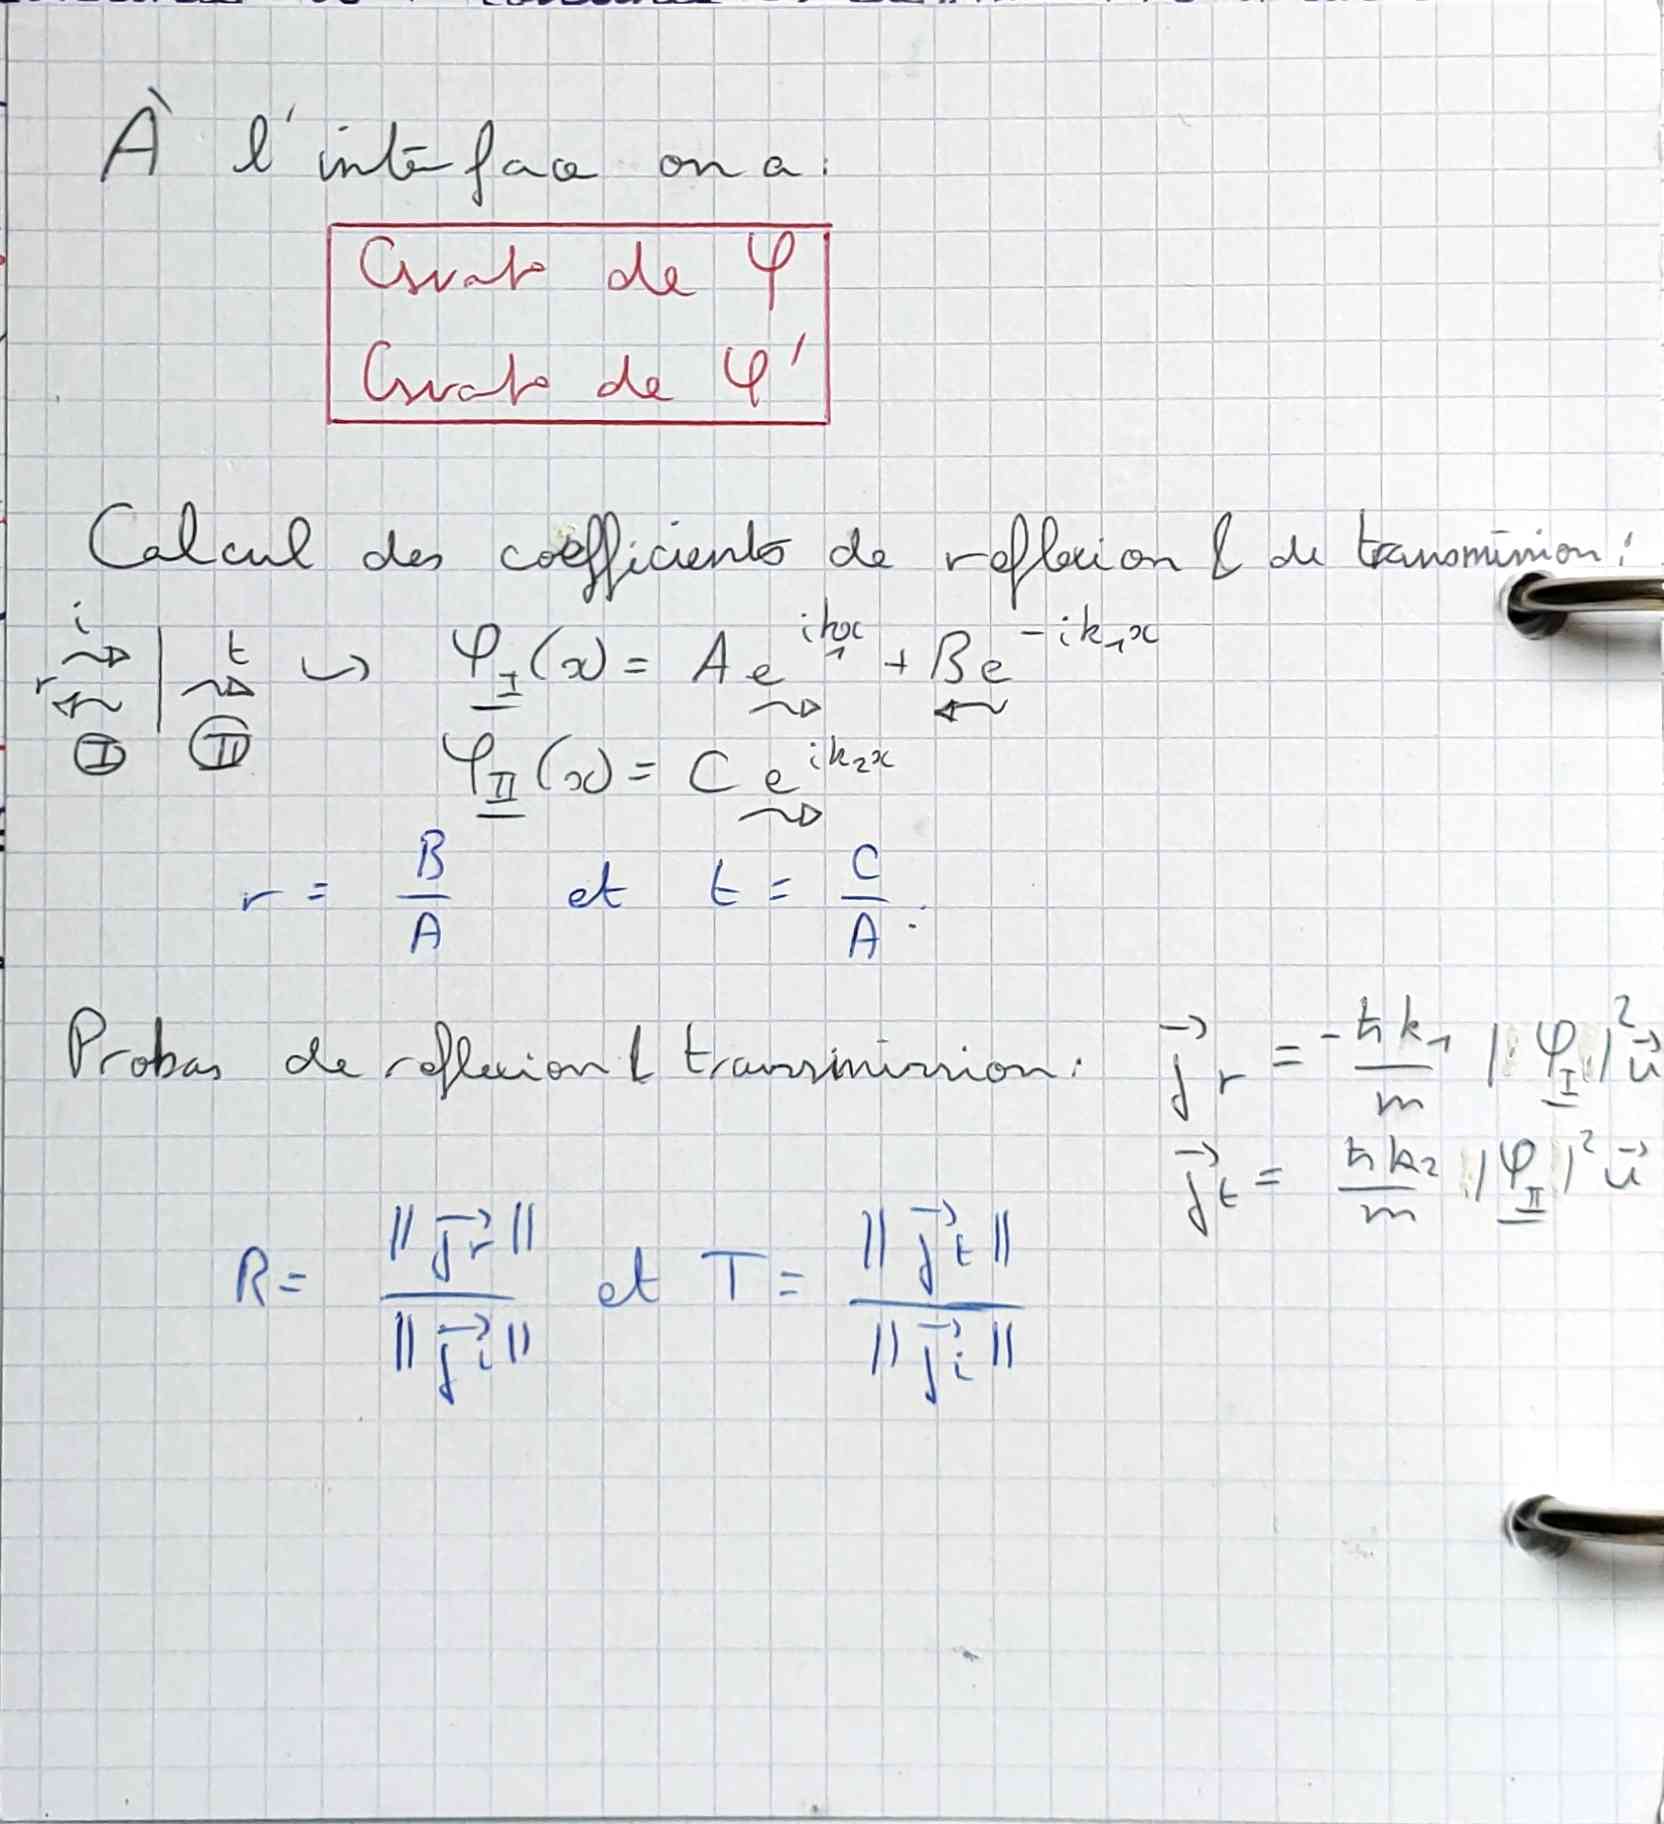 À l'interface on a :
Csvato de φ
Csvato de φ'
Calcul des coefficients de reflexion & de transmission :
i r t I II ↪ φ_I(x) = A e^{ik₁x} + B e^{-ik₁x}
φ_II(x) = C e^{ik₂x}
r = B/A et t = C/A.
Probas de reflexion & transmission :
j⃗r = -ħk₁/m |φ_I|² u⃗
j⃗t = ħk₂/m |φ_II|² u⃗
R = ||j⃗r||/||j⃗i|| et T = ||j⃗t||/||j⃗i||